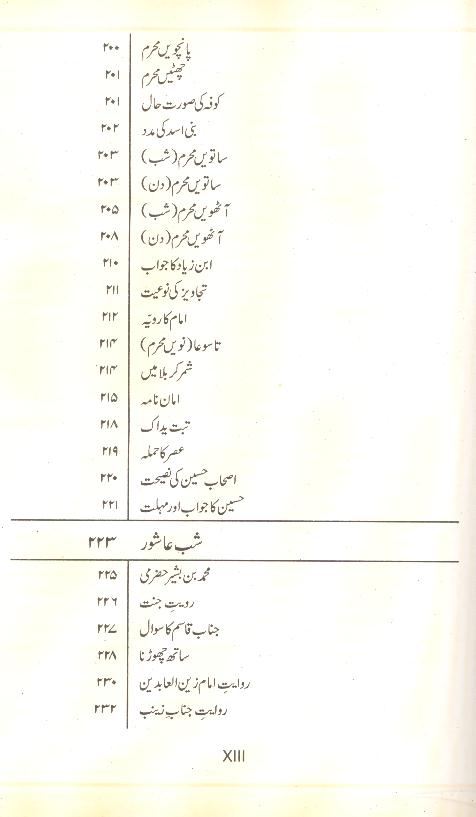 پانچویں محرم ۲۰۰
چھٹیں محرم ۲۰۱
کوفہ کی صورت حال ۲۰۱
بنی اسد کی مدد ۲۰۲
ساتویں محرم (شب) ۲۰۳
ساتویں محرم (دن) ۲۰۳
آٹھویں محرم (شب) ۲۰۵
آٹھویں محرم (دن) ۲۰۸
ابن زیاد کا جواب ۲۱۰
تجاویز کی نوعیت ۲۱۱
امام کا رویّہ ۲۱۲
تاسوعا (نویں محرم) ۲۱۴
شمر کربلا میں ۲۱۴
امان نامہ ۲۱۵
تبت یداک ۲۱۸
عصر کا حملہ ۲۱۹
اصحاب حسین کی نصیحت ۲۲۰
حسین کا جواب اور مہلت ۲۲۱
شب عاشور ۲۲۳
محمد بن بشیر حضرمی ۲۲۵
رویتِ جنت ۲۲۶
جناب قاسم کا سوال ۲۲۷
ساتھ چھوڑنا ۲۲۸
روایتِ امام زین العابدین ۲۳۰
روایتِ جنابِ زینب ۲۳۲
XIII